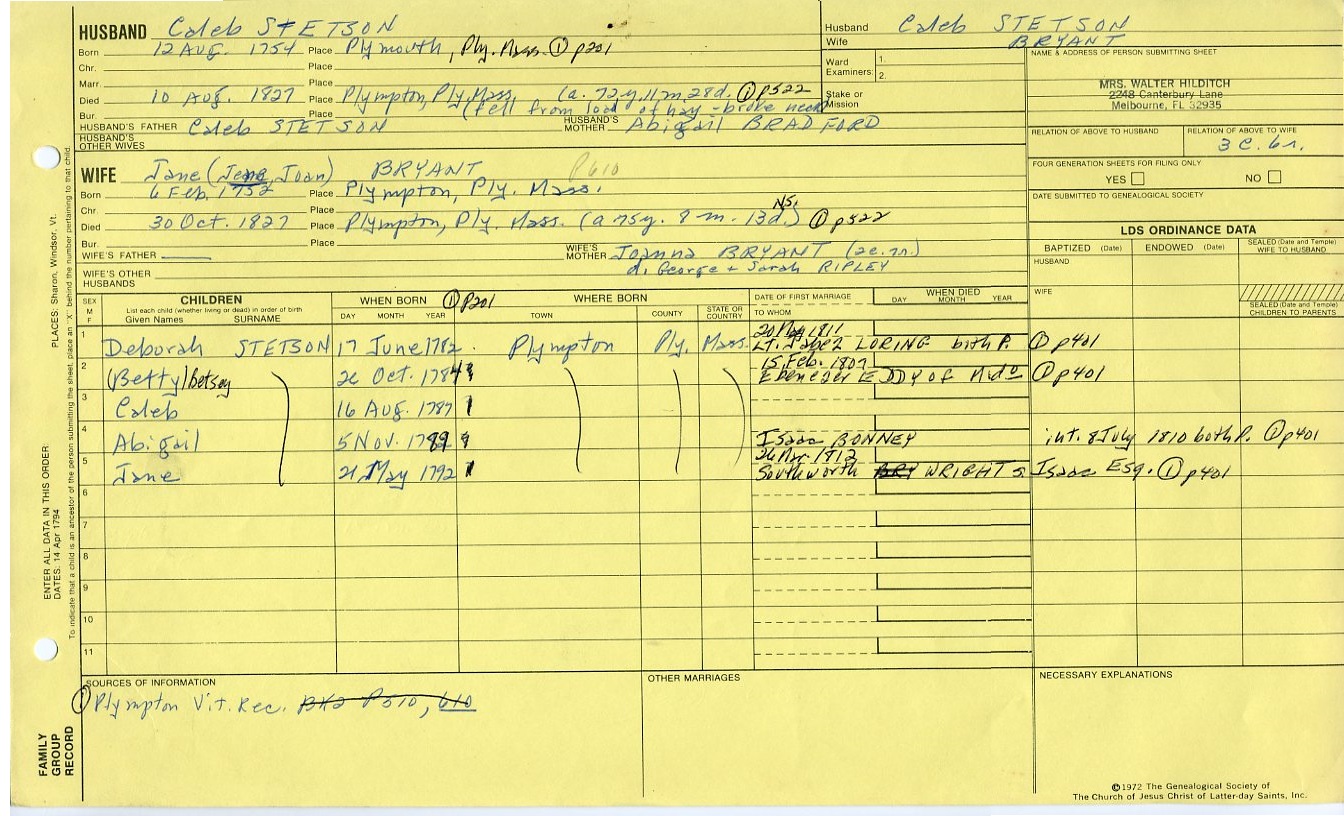 HUSBAND Caleb STETSON
Born 12 AUG. 1754 Place Plymouth, Ply. Mass. ① p201
Chr. Place
Marr. Place
Died 10 AUG. 1827 Place Plympton, Ply, Mass. (a. 72y. 11m. 28d. ① p522
Bur. Place (fell from load of hay - broke neck)
HUSBAND'S FATHER Caleb STETSON HUSBAND'S MOTHER Abigail BRADFORD
HUSBAND'S OTHER WIVES
Husband Caleb STETSON
Wife BRYANT
Ward Examiners: 1. 2.
Stake or Mission
NAME & ADDRESS OF PERSON SUBMITTING SHEET
MRS. WALTER HILDITCH
2248 Canterbury Lane
Melbourne, FL 32935
RELATION OF ABOVE TO HUSBAND RELATION OF ABOVE TO WIFE
3 C. 6r.
FOUR GENERATION SHEETS FOR FILING ONLY
YES NO
DATE SUBMITTED TO GENEALOGICAL SOCIETY
WIFE Jane (Jene, Joan) BRYANT P610
Born 6 Feb. 1752 Place Plympton, Ply. Mass.
Chr. Place
Died 30 Oct. 1827 Place Plympton, Ply. Mass. (a 75y. 8 m. 13d.) NS. ① p522
Bur. Place
WIFE'S FATHER WIFE'S MOTHER Joanna BRYANT (2c. 7r.)
d. George + Sarah RIPLEY
WIFE'S OTHER HUSBANDS
LDS ORDINANCE DATA
BAPTIZED (Date) ENDOWED (Date) SEALED (Date and Temple) WIFE TO HUSBAND
HUSBAND
WIFE
SEALED (Date and Temple) CHILDREN TO PARENTS
SEX M F CHILDREN WHEN BORN ① p201 WHERE BORN DATE OF FIRST MARRIAGE WHEN DIED
List each child (whether living or dead) in order of birth
Given Names SURNAME DAY MONTH YEAR TOWN COUNTY STATE OR COUNTRY TO WHOM DAY MONTH YEAR
1 Deborah STETSON 17 June 1782 Plympton Ply. Mass. 1811
Lt. Jabez LORING both P. ① p401
2 (Betty) Betsey 22 Oct. 1784 15 Feb. 1807
Ebenezer EDDY of Mido ① p401
3 Caleb 16 Aug. 1787
4 Abigail 5 Nov. 1789 Isaac BONNEY int. 8 July 1810 both P. ① p401
5 Jane 21 May 1792 1812
Southworth BRY WRIGHT s. Isaac Esq. ① p401
6
7
8
9
10
11
SOURCES OF INFORMATION
① Plympton Vit. Rec. BK2 P510, 610
OTHER MARRIAGES
NECESSARY EXPLANATIONS
©1972 The Genealogical Society of
The Church of Jesus Christ of Latter-day Saints, Inc.
FAMILY GROUP RECORD
ENTER ALL DATA IN THIS ORDER
DATES: 14 Apr 1794 PLACES: Sharon, Windsor, Vt.
To indicate that a child is an ancestor of the person submitting the sheet, place an "X" behind the number pertaining to that child.